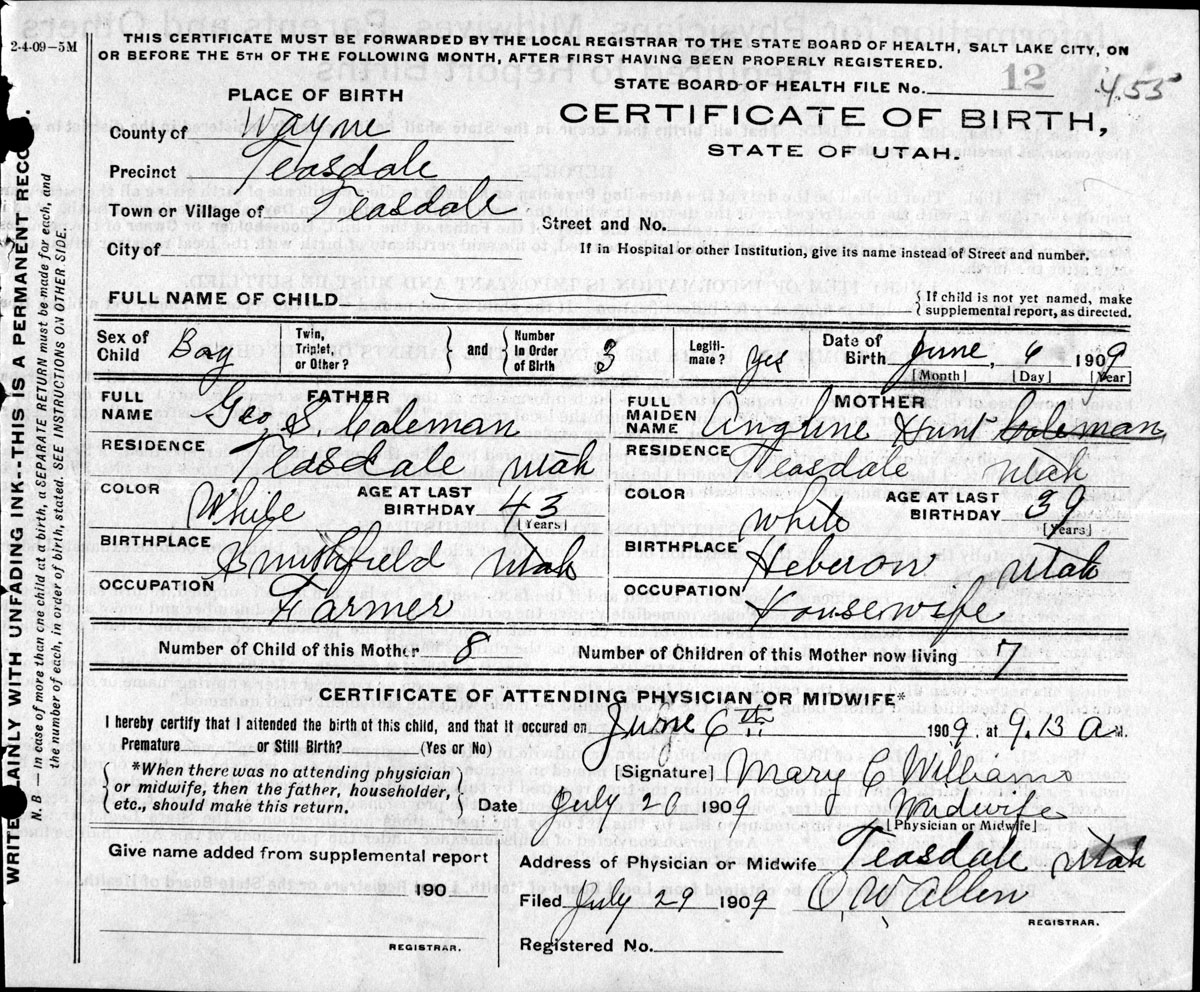 2-4-09-5M
THIS CERTIFICATE MUST BE FORWARDED BY THE LOCAL REGISTRAR TO THE STATE BOARD OF HEALTH, SALT LAKE CITY, ON
OR BEFORE THE 5TH OF THE FOLLOWING MONTH, AFTER FIRST HAVING BEEN PROPERLY REGISTERED.
STATE BOARD OF HEALTH FILE No. 12 455
PLACE OF BIRTH
CERTIFICATE OF BIRTH,
STATE OF UTAH.
County of Wayne
Precinct Teasdale
Town or Village of Teasdale
Street and No.
City of
If in Hospital or other Institution, give its name instead of Street and number.
FULL NAME OF CHILD
{ If child is not yet named, make
supplemental report, as directed.
Sex of Child Boy Twin, Triplet, or Other? } and { Number In Order of Birth 3 Legiti-mate? yes Date of Birth June, 6 1909
[Month] [Day] [Year]
FATHER
MOTHER
FULL NAME Geo. S. Coleman
FULL MAIDEN NAME Angline Hunt Coleman
RESIDENCE Teasdale Utah
RESIDENCE Teasdale Utah
COLOR White AGE AT LAST BIRTHDAY 43
[Years]
COLOR White AGE AT LAST BIRTHDAY 39
[Years]
BIRTHPLACE Smithfield Utah
BIRTHPLACE Heberon Utah
OCCUPATION Farmer
OCCUPATION Housewife
Number of Child of this Mother 8 Number of Children of this Mother now living 7
CERTIFICATE OF ATTENDING PHYSICIAN OR MIDWIFE*
I hereby certify that I attended the birth of this child, and that it occured on June 6th 1909, at 9.13 A M.
Premature or Still Birth? (Yes or No)
*When there was no attending physician
or midwife, then the father, householder,
etc., should make this return.
[Signature] Mary C Williams
Date July 26 1909 Midwife
[Physician or Midwife]
Give name added from supplemental report
190
REGISTRAR.
Address of Physician or Midwife Teasdale Utah
Filed July 29 1909 O W Allen
REGISTRAR.
Registered No.
WRITE PLAINLY WITH UNFADING INK--THIS IS A PERMANENT RECO
N. B. — In case of more than one child at a birth, a SEPARATE RETURN must be made for each, and
the number of each, in order of birth, stated. SEE INSTRUCTIONS ON OTHER SIDE.